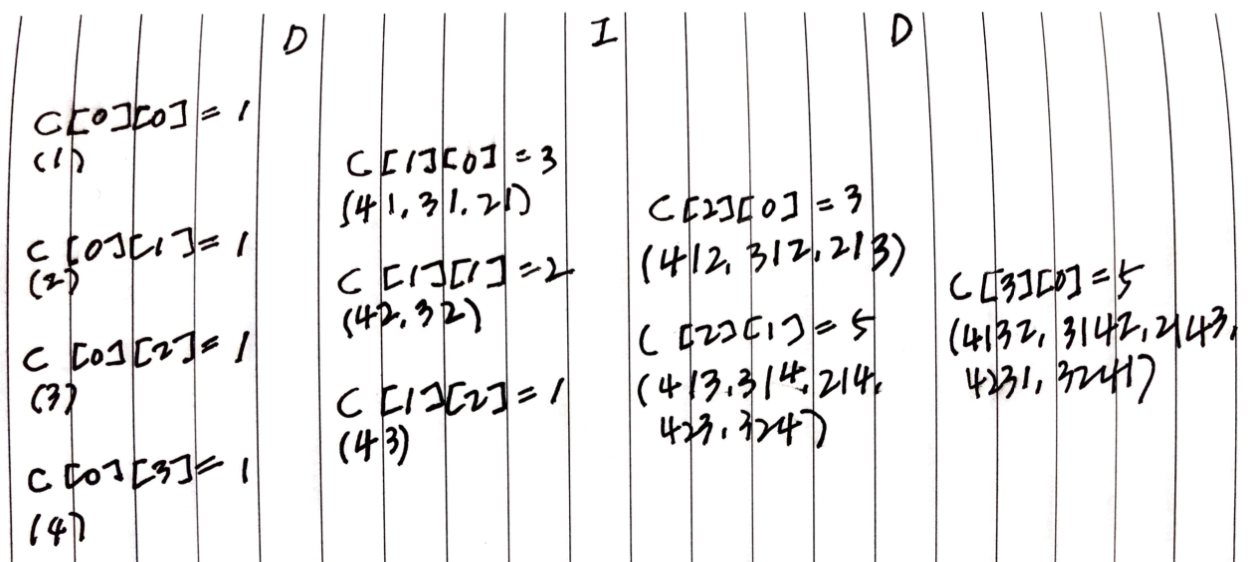 D
I
D
C[0][0] = 1
(1)
C[0][1] = 1
(2)
C[0][2] = 1
(3)
C[0][3] = 1
(4)
C[1][0] = 3
(41, 31, 21)
C[1][1] = 2
(42, 32)
C[1][2] = 1
(43)
C[2][0] = 3
(412, 312, 213)
C[2][1] = 5
(413, 314, 214,
423, 324)
C[3][0] = 5
(4132, 3142, 2143,
4231, 3241)